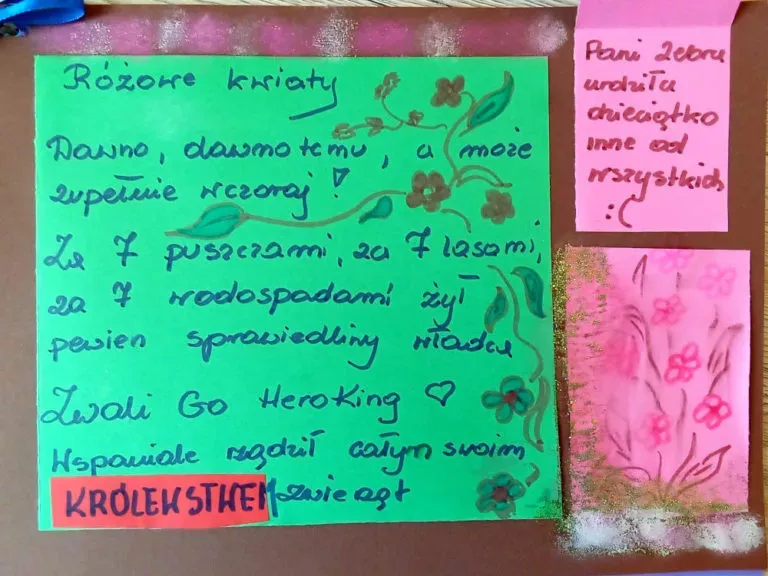 Różowe kwiaty
Dawno, dawno temu, a może
zupełnie wczoraj!
Za 7 puszczami, za 7 lasami,
za 7 wodospadami żył
pewien sprawiedliwy władca
Zwali Go HeroKing ♡
Wspaniale rządził całym swoim
KRÓLEWSTWEM zwierząt
Pani Zebra
urdziła
dzieciątko
inne od
wszystkich
:(